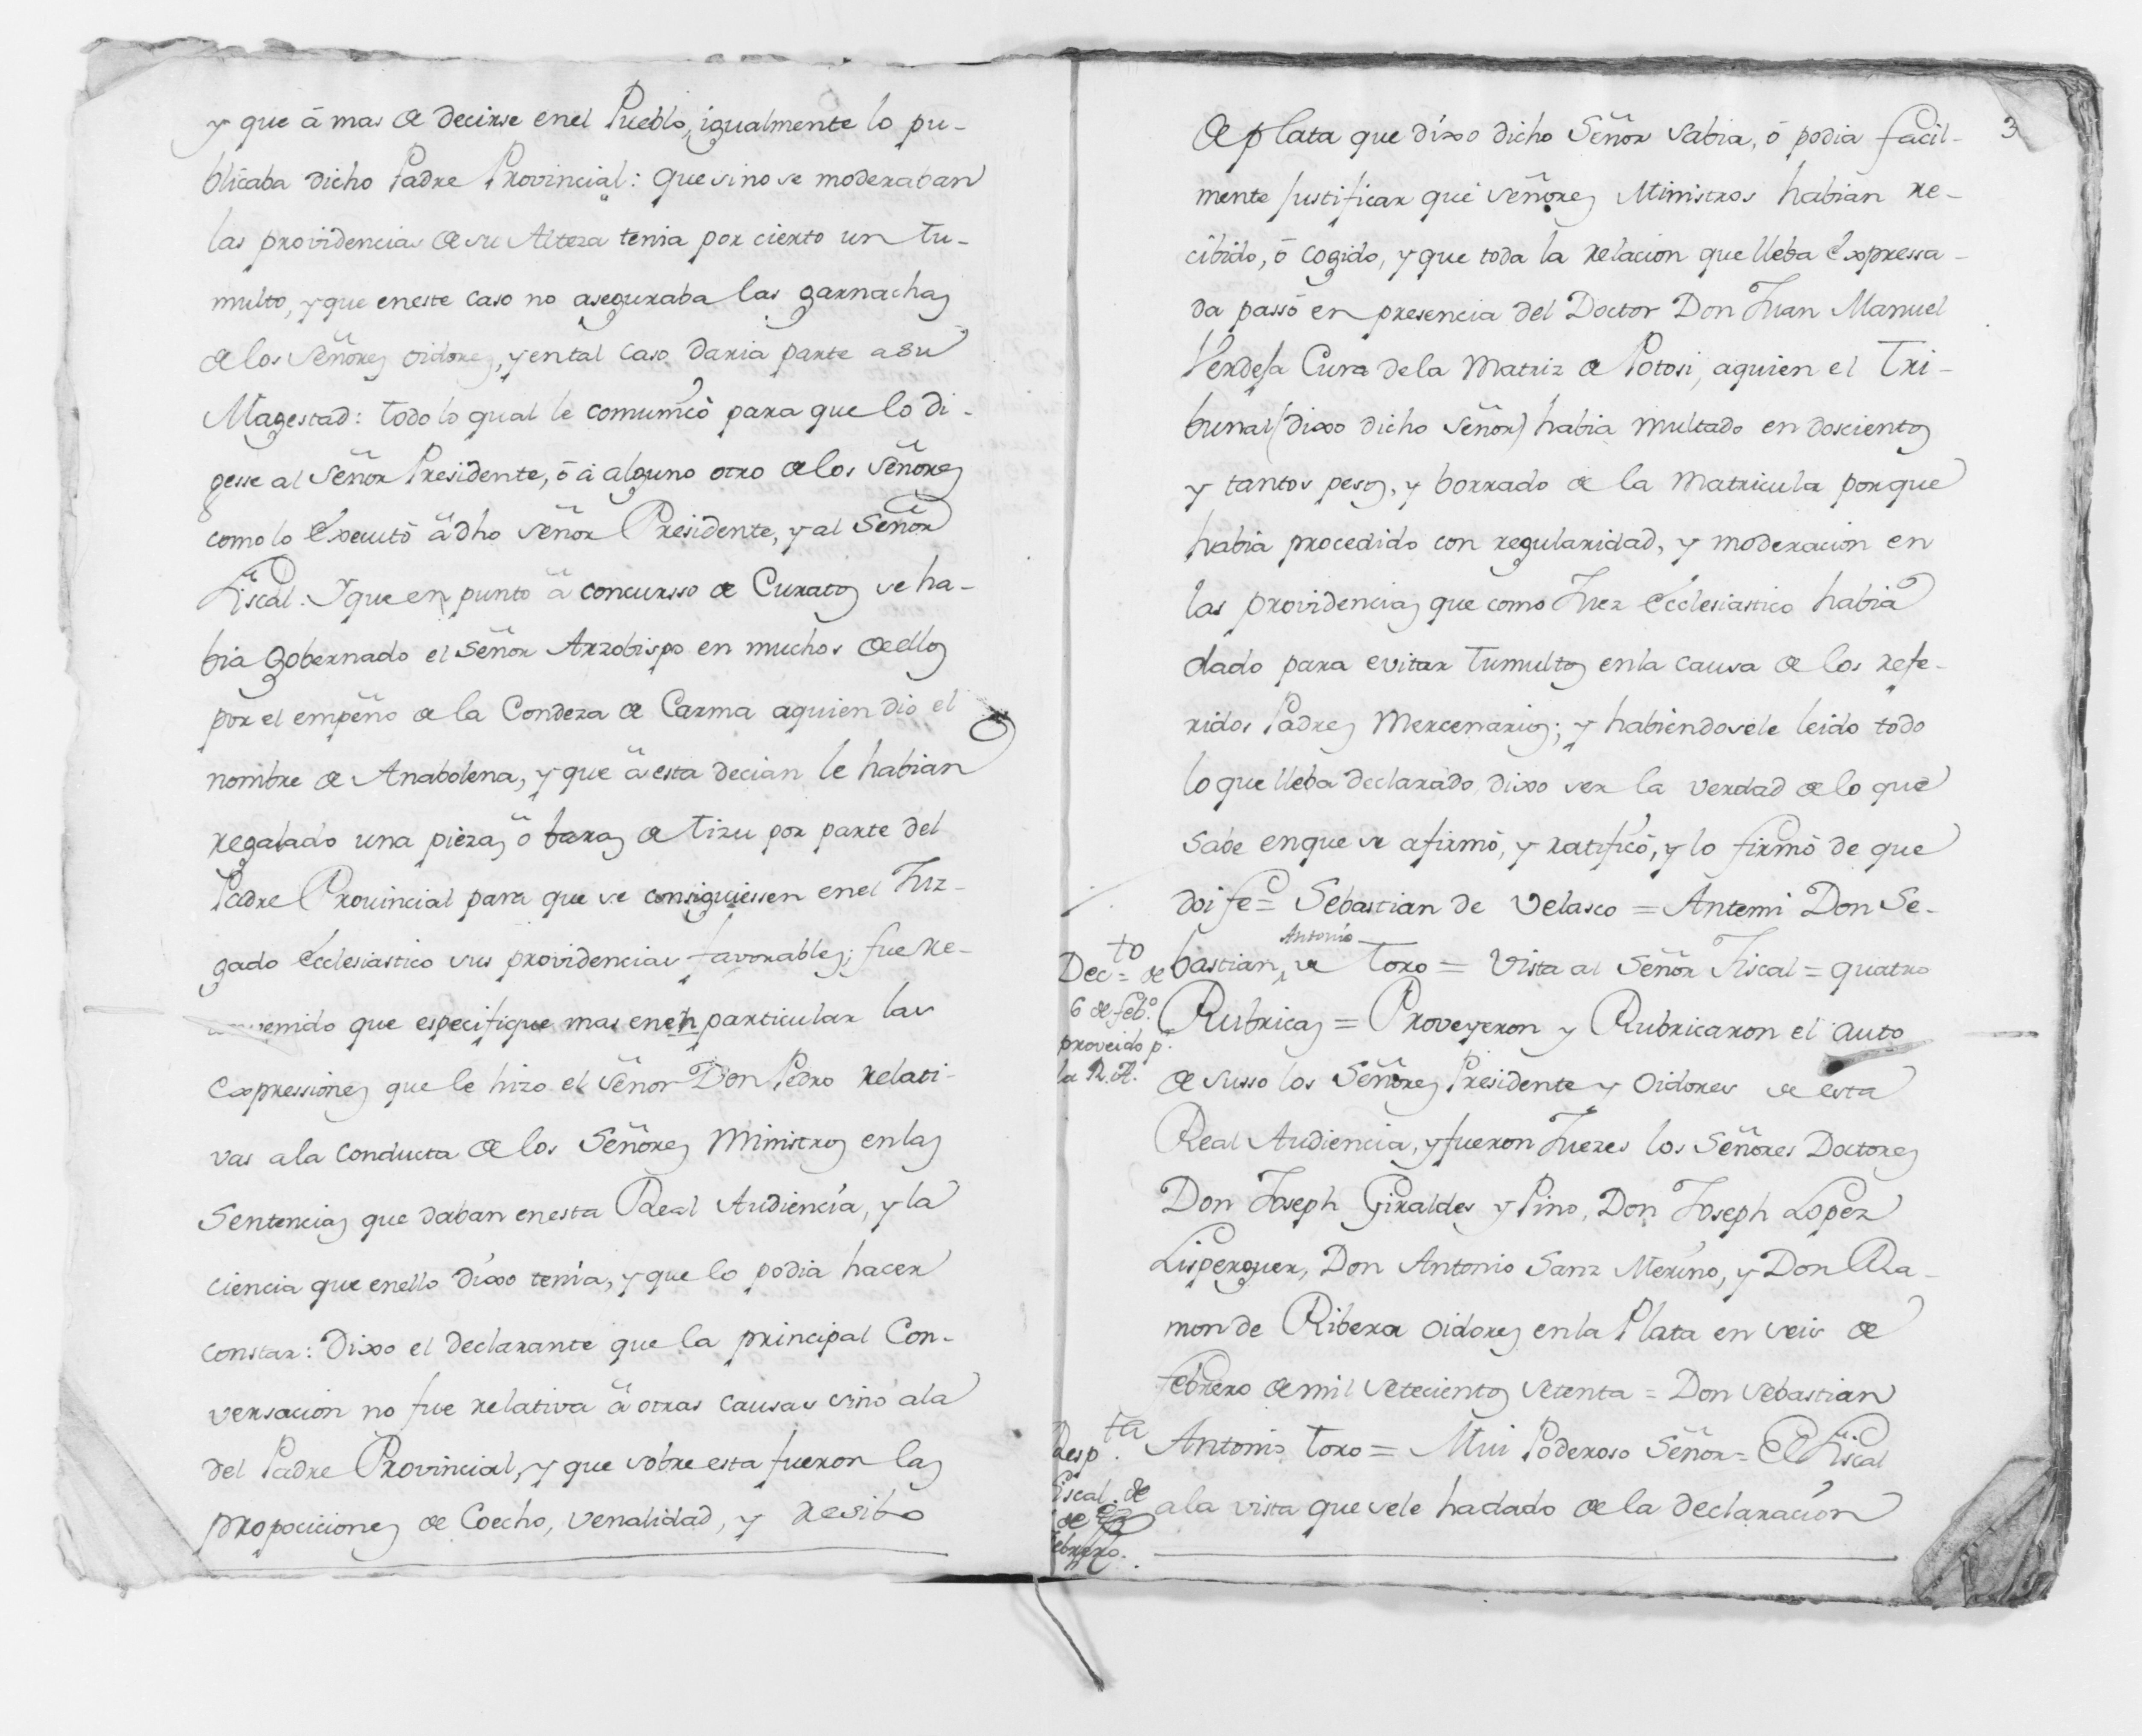 y que â mas de decirse enel Pueblo, igualmente lo pu-
blicaba dicho Padre Provincial: que sino se moderaban
las providencias de su Alteza tenia por cierto un tu-
multo, y que eneste caso no aseguraba las garnachas
de los Señores oidores, y ental caso daria parte a su
Magestad: todo lo qual le comunicò para que lo di-
gesse al Señor Presidente, ô â alguno otro de los Señores
como lo executò â dho Señor Presidente, y al Señor
Fiscal: Y que en punto â concursso de Curatos se ha-
bia gobernado el Señor Arzobispo en muchos de ellos
por el empeño de la Condeza de Carma aquien diò el
nombre de Anabolena, y que â esta decian le habian
regalado una pieza, ô baras de tizu por parte del
Padre Provincial para que se consiguiessen enel Juz-
gado Ecclesiastico sus providencias favorables; fue re-
venido que especifique mas enen particular las
expressiones que le hizo el Señor Don Pedro relati-
vas ala conducta de los Señores Ministros enlas
Sentencias que daban enesta Real Audiencia, y la
ciencia que enello dixo tenia, y que lo podia hacer
constar: Dixo el declarante que la principal Con-
versacion no fue relativa â otras causas sino ala
del Padre Provincial, y que sobre esta fueron las
propociciones de Coecho, venalidad, y resibo
3
de plata que dixo dicho Señor sabia, ô podia facil-
mente justificar que Señores Ministros habian re-
cibido, ô cogido, y que toda la relacion que lleba expressa-
da passò en presencia del Doctor Don Juan Manuel
Verdeja Cura dela Matriz de Potosi, aquien el Tri-
bunal (dixo dicho Señor) habia multado en doscientos
y tantos pesos, y borrado de la Matricula porque
habia procedido con regularidad, y moderacion en
las providencias que como Juez Ecclesiastico habia
dado para evitar tumultos enla causa de los refe-
ridos Padres Mercenarios; y habiendosele leido todo
lo que lleba declarado dixo ser la verdad de lo que
sabe enque se afirmò, y ratificò, y lo firmò de que
doi fe= Sebastian de Velasco = Antemi Don Se-
Antonio
bastian de Toro = Vista al Señor Fiscal = quatro
Rubricas = Proveyeron y Rubricaron el auto
de susso los Señores Presidente y Oidores de esta
Real Audiencia, y fueron Juezes los Señores Doctores
Don Joseph Giraldes y Pino, Don Joseph Lopez
Lisperguer, Don Antonio Sanz Merino, y Don Ra-
mon de Ribera oidores enla Plata en seis de
febrero de mil setecientos setenta = Don Sebastian
Antonio Toro = Mui Poderoso Señor = El Fiscal
ala vista que sele hadado de la declaracion
Decto= de
6 de febo.
proveido p.
la R. A.
Respta
Fiscal. de
de
ebrero.